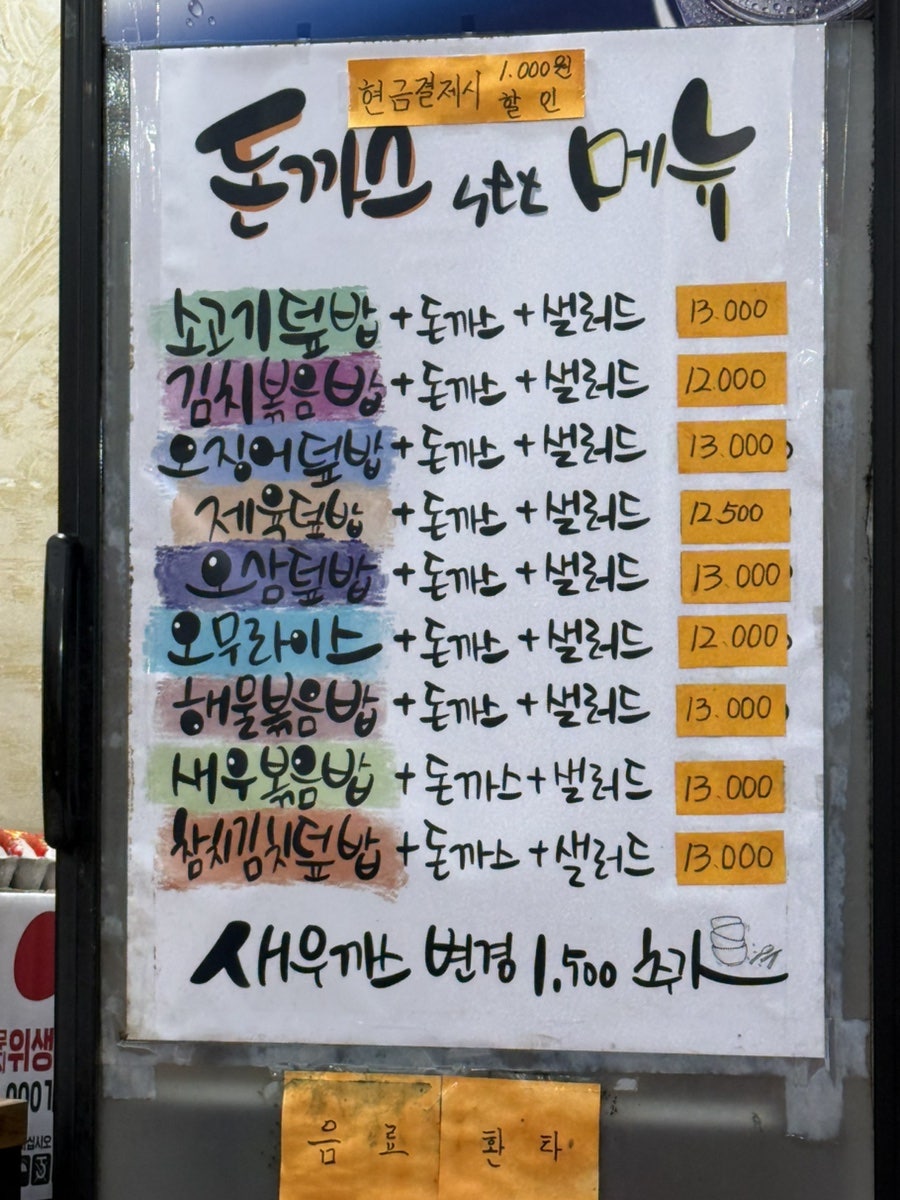 현금결제시 1.000원 할인
돈까스 세트 메뉴
소고기덮밥 + 돈까스 + 샐러드 13.000
김치볶음밥 + 돈까스 + 샐러드 12.000
오징어덮밥 + 돈까스 + 샐러드 13.000
제육덮밥 + 돈까스 + 샐러드 12.500
오삼덮밥 + 돈까스 + 샐러드 13.000
오무라이스 + 돈까스 + 샐러드 12.000
해물볶음밥 + 돈까스 + 샐러드 13.000
새우볶음밥 + 돈까스 + 샐러드 13.000
참치김치덮밥 + 돈까스 + 샐러드 13.000
새우까스 변경 1,500 추가
음료 환타
위생